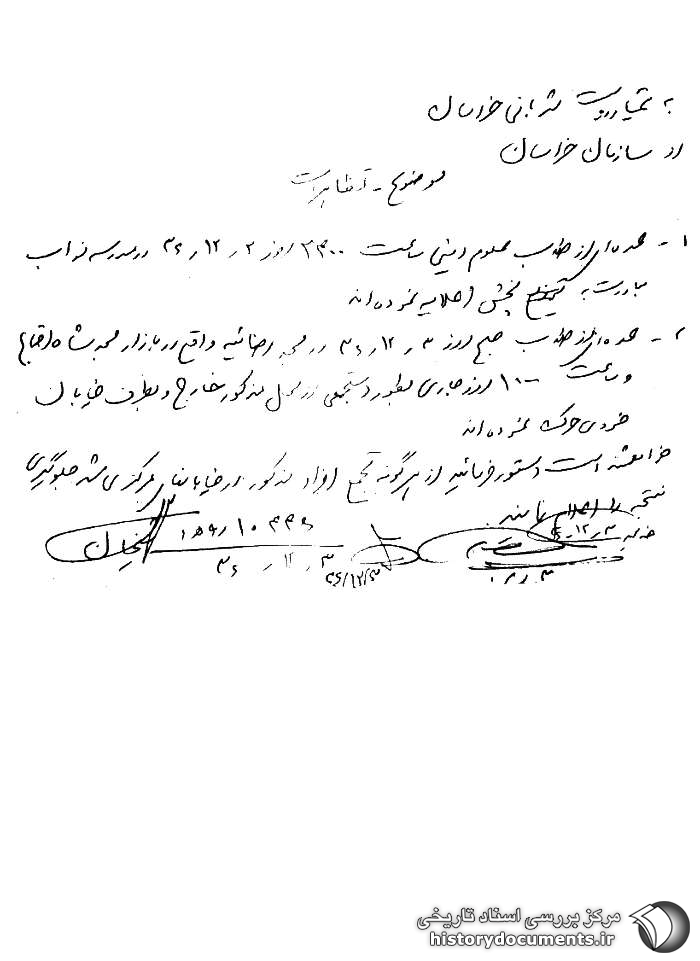 به تیمسار ریاست شهربانی خراسان
از سازمان خراسان
موضوع - تظاهرات
۱- عده‌ای از طلاب علوم دینی ساعت ۲۳۰۰ روز ۲ ر ۱۲ ر ۳۶ در مدرسه نواب
مبادرت به پخش اعلامیه نموده‌اند
۲- عده‌ای از طلاب صبح روز ۳ ر ۱۲ ر ۳۶ در مسجد رضائیه واقع در بازار محمد شاه
و ساعت ۱۰۰۰ روز جاری بطور دستجمعی از محل مذکور خارج و بطرف خیابان
خسروی حرکت نموده‌اند
خواهشمند است دستور فرمائید از هرگونه تجمع افراد مذکور در خیابانهای مرکزی شهر جلوگیری
نتیجه را اعلام نمایند
۳ ر ۱۲ ر ۳۶
۳۶/۱۲/۳
مرکز بررسی اسناد تاریخی
historydocuments.ir